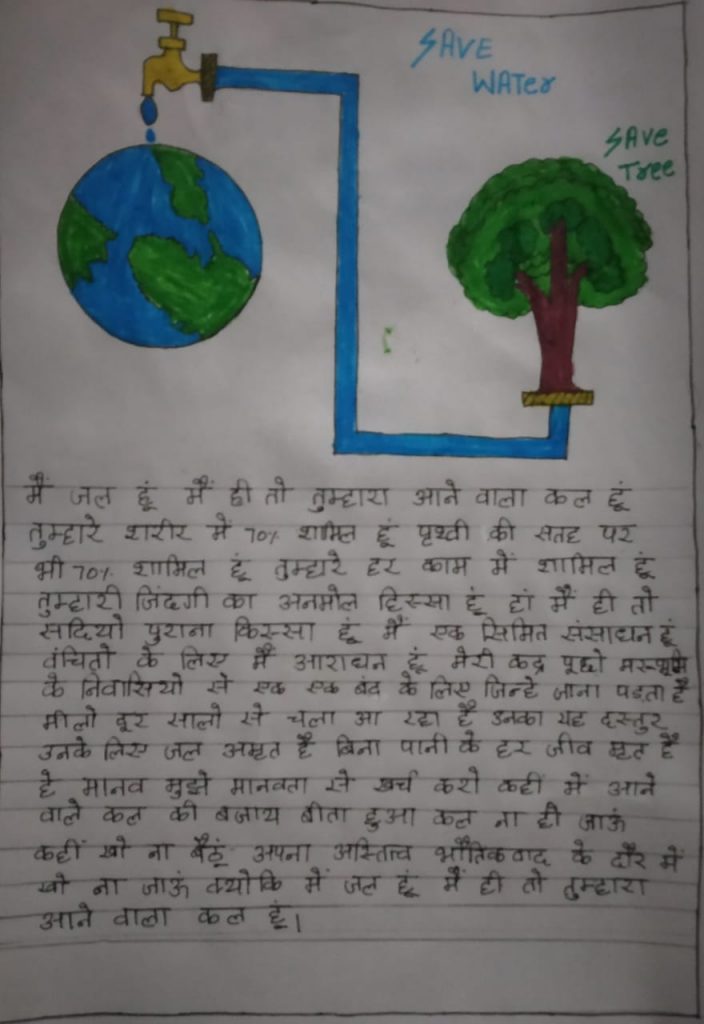 SAVE
WATer
SAVe
Tree
मैं जल हूं मैं ही तो तुम्हारा आने वाला कल हूं
तुम्हारे शरीर में 70% शामिल हूं पृथ्वी की सतह पर
भी 70% शामिल हूं तुम्हारे हर काम में शामिल हूं
तुम्हारी जिंदगी का अनमोल हिस्सा हूं हां मैं ही तो
सदियो पुराना किस्सा हूं मैं एक सिमित संसाधन हूं
वंचितो के लिए मैं आराधन हूं मेरी कद्र पूछो मरूभूमि
के निवासियो से एक एक बंद के लिए जिन्हे जाना पड़ता है
मीलो दूर सालो से चला आ रहा है उनका यह दस्तुर
उनके लिए जल अमृत है बिना पानी के हर जीव मृत है
हे मानव मुझे मानवता से खर्च करो कहीं में आने
वाले कल की बजाय बीता हुआ कल ना ही जाऊं
कहीं खो ना बैठूं अपना अस्तित्व भौतिकवाद के दौर में
खो ना जाऊं क्योकि में जल हूं मैं ही तो तुम्हारा
आने वाला कल हूं।